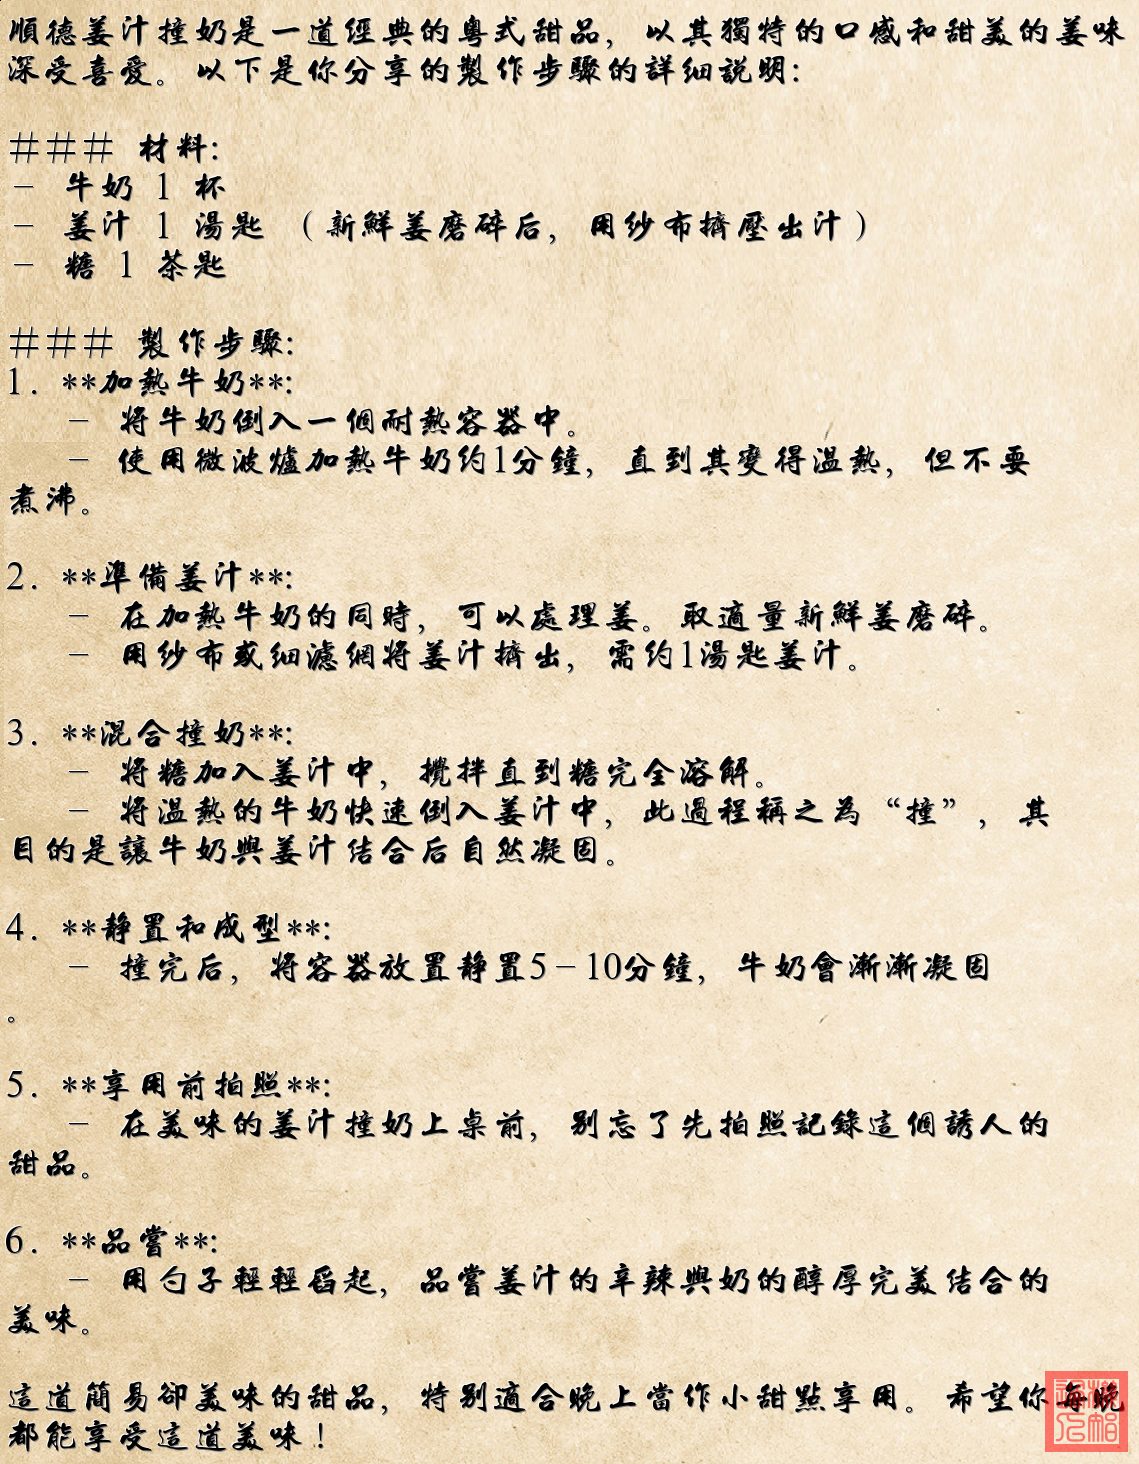 順德姜汁撞奶是一道經典的粵式甜品，以其獨特的口感和甜美的姜味
深受喜愛。以下是你分享的製作步驟的詳細説明：
### 材料：
- 牛奶 1 杯
- 姜汁 1 湯匙 （新鮮姜磨碎后，用紗布擠壓出汁）
- 糖 1 茶匙
### 製作步驟：
1. **加熱牛奶**：
- 將牛奶倒入一個耐熱容器中。
- 使用微波爐加熱牛奶約1分鐘，直到其變得温熱，但不要
煮沸。
2. **準備姜汁**：
- 在加熱牛奶的同時，可以處理姜。取適量新鮮姜磨碎。
- 用紗布或細濾網將姜汁擠出，需約1湯匙姜汁。
3. **混合撞奶**：
- 將糖加入姜汁中，攪拌直到糖完全溶解。
- 將温熱的牛奶快速倒入姜汁中，此過程稱之為“撞”，其
目的是讓牛奶與姜汁結合后自然凝固。
4. **静置和成型**：
- 撞完后，將容器放置静置5-10分鐘，牛奶會漸漸凝固
。
5. **享用前拍照**：
- 在美味的姜汁撞奶上桌前，别忘了先拍照記録這個誘人的
甜品。
6. **品嘗**：
- 用勺子輕輕舀起，品嘗姜汁的辛辣與奶的醇厚完美結合的
美味。
這道簡易卻美味的甜品，特别適合晚上當作小甜點享用。希望你每晚
都能享受這道美味！